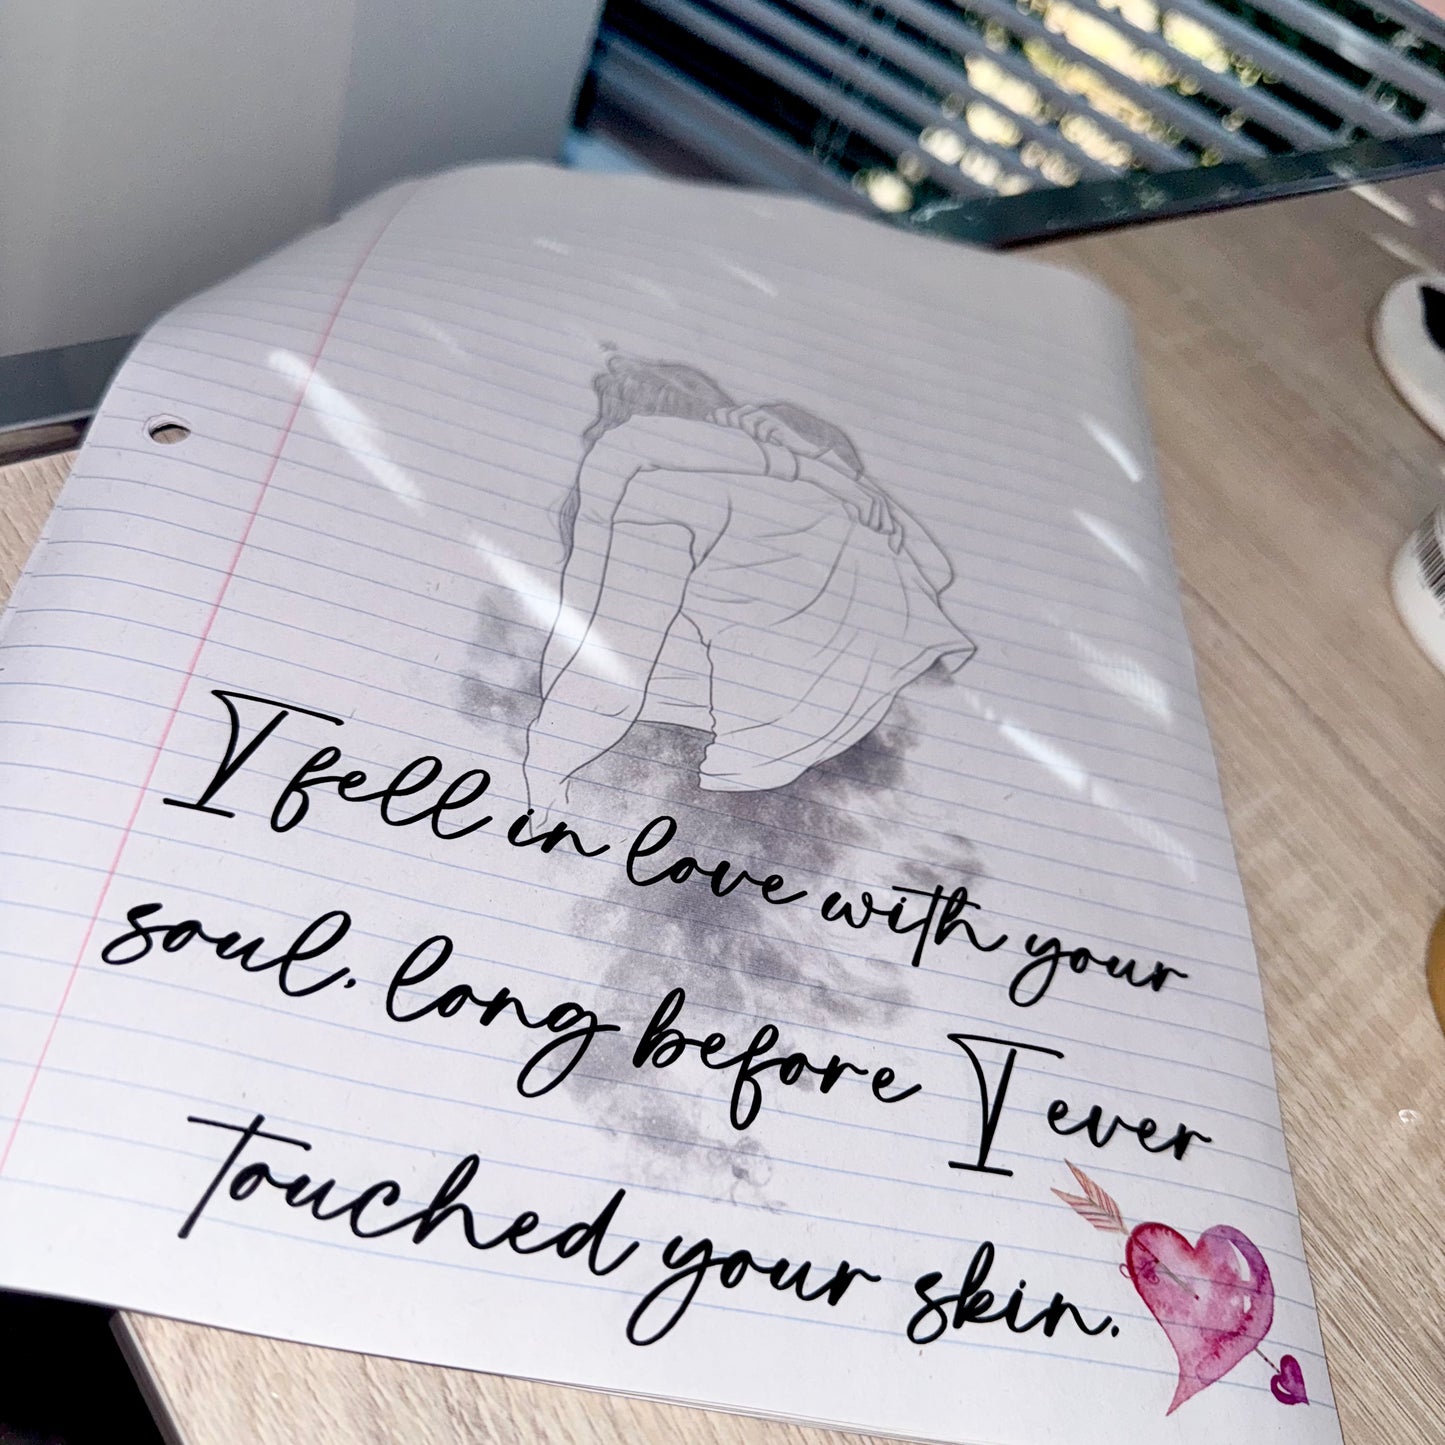 I fell in love with your
soul, long before I ever
Touched your skin.